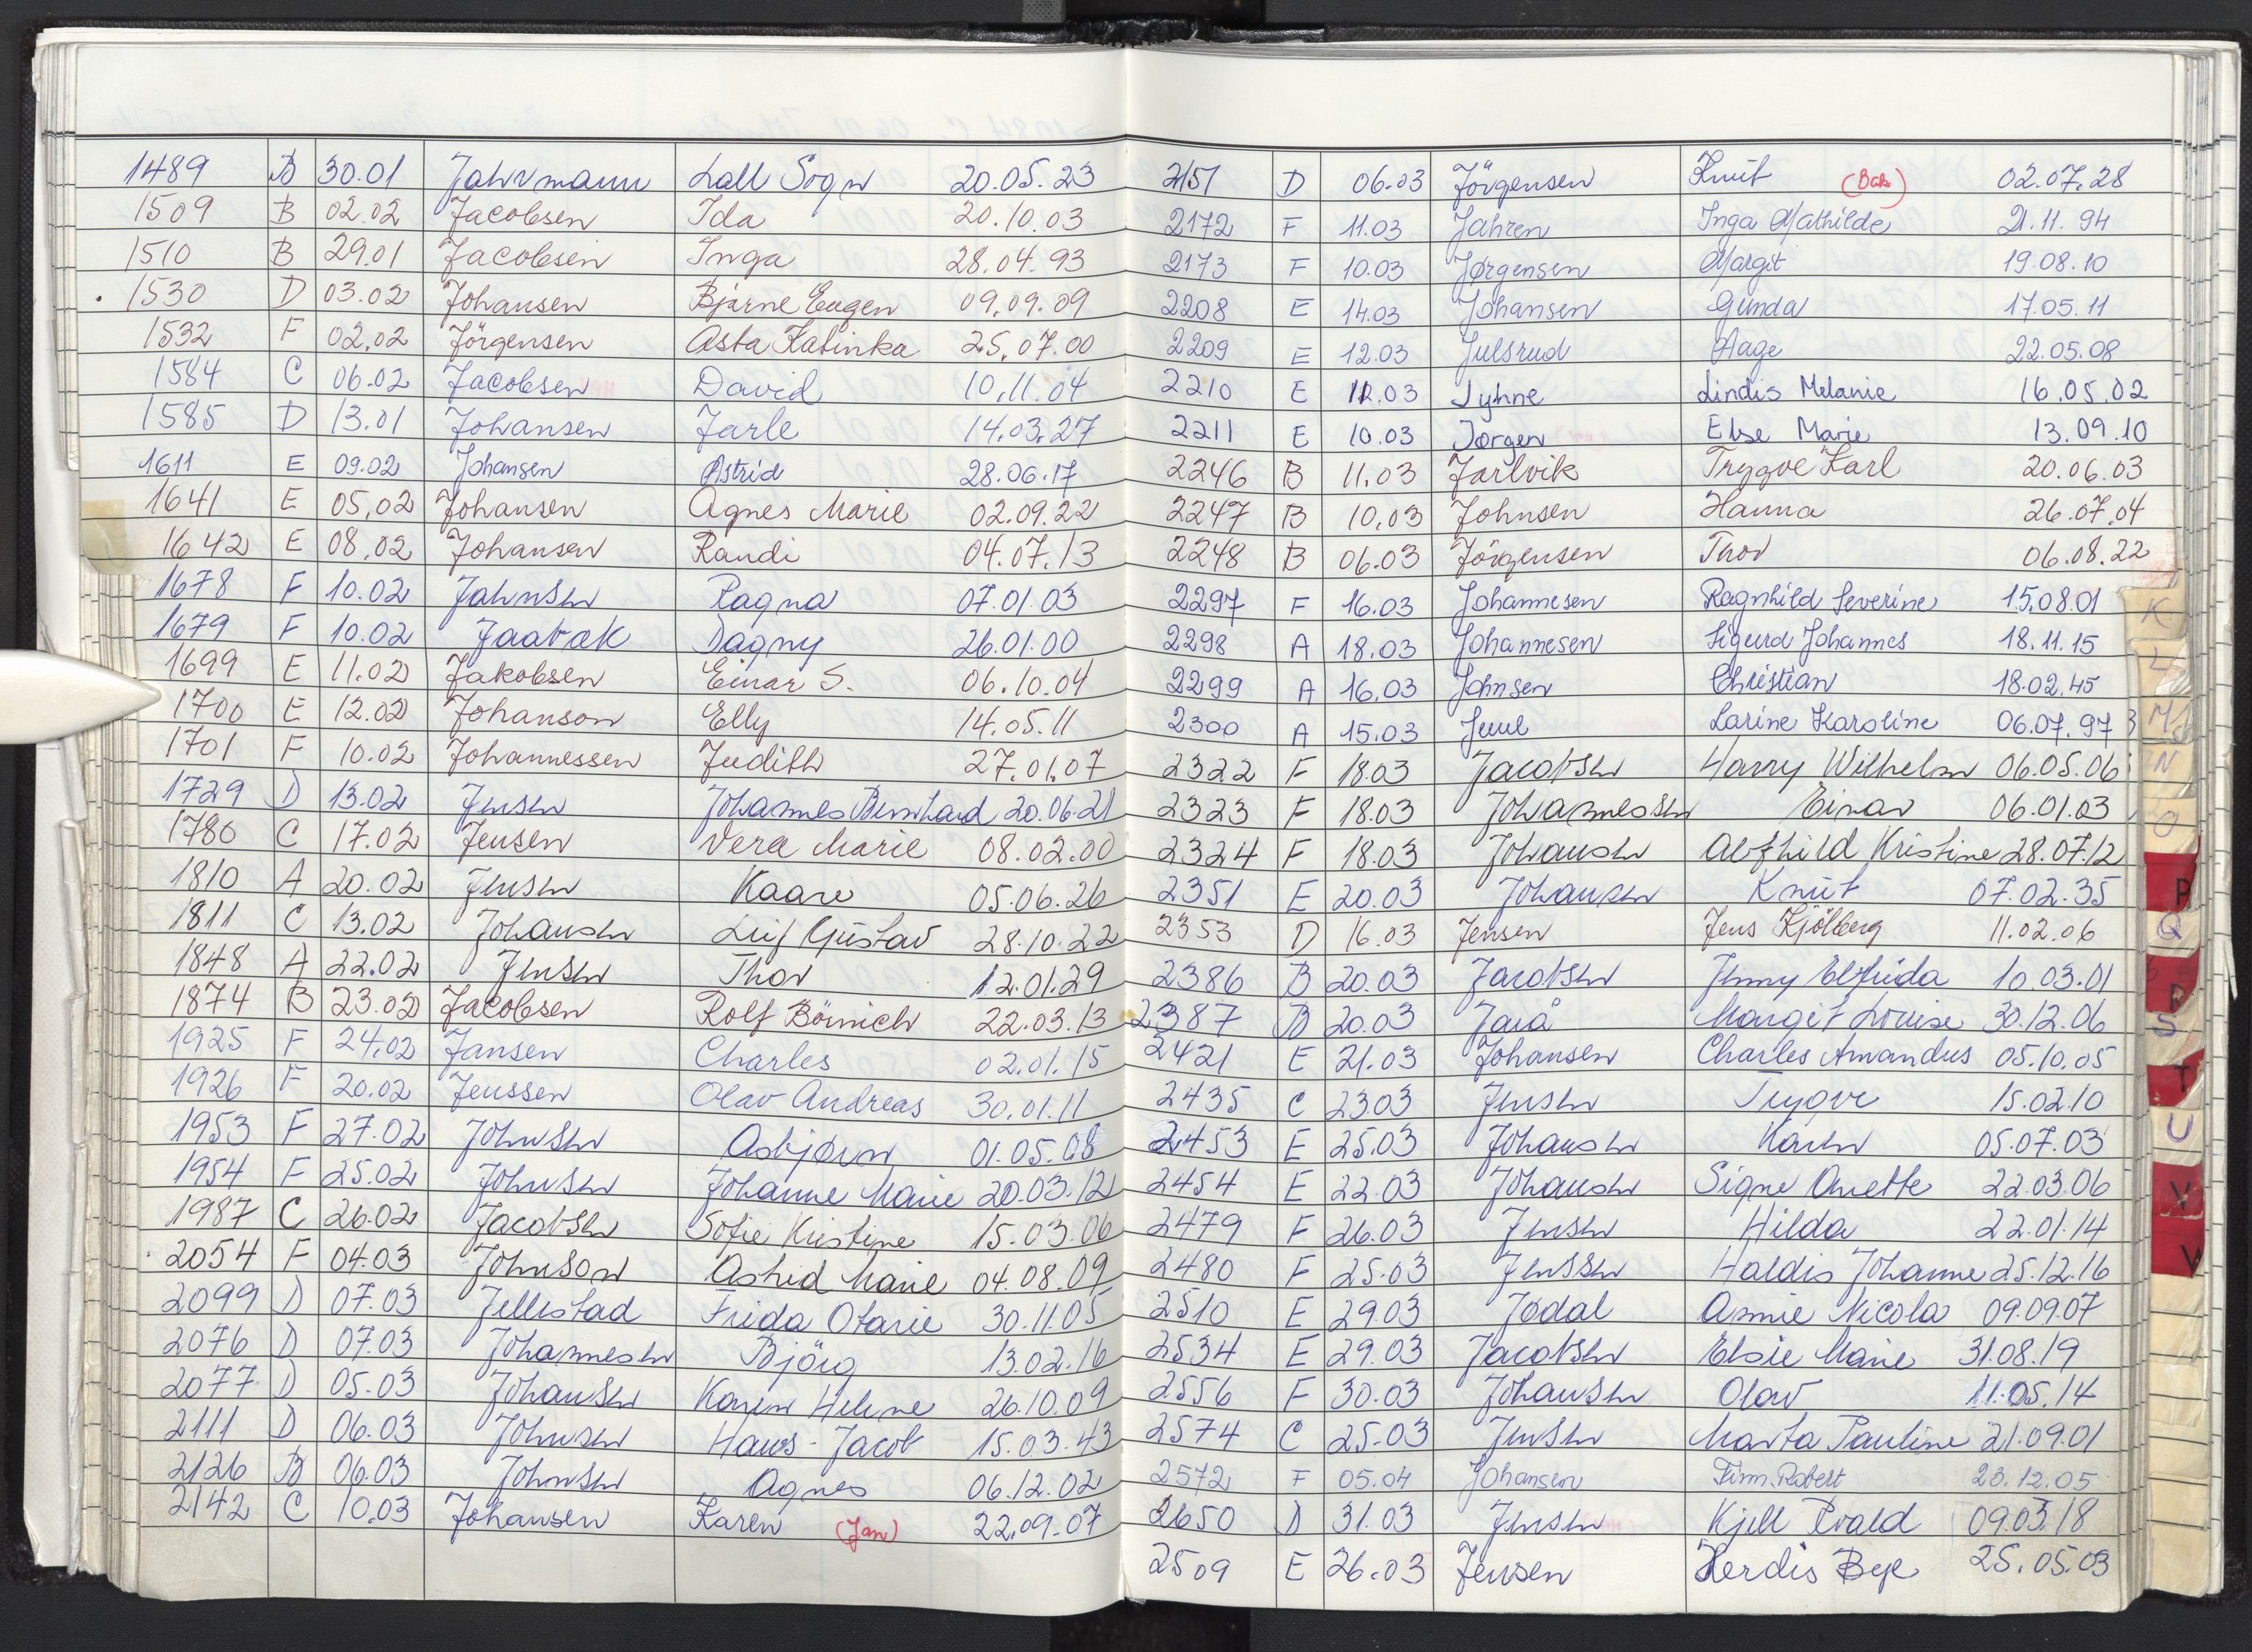 1489 B 30.01 Jahrmann Lall Sogn 20.05.23
1509 B 02.02 Jacobsen Ida 20.10.03
1510 B 29.01 Jacobsen Inga 28.04.93
1530 D 03.02 Johansen Bjarne Eugen 09.09.09
1532 F 02.02 Jörgensen Asta Katinka 25.07.00
1584 C 06.02 Jacobsen David 10.11.04
1585 D 13.01 Johansen Jarle 14.03.27
1611 E 09.02 Johansen Astrid 28.06.17
1641 E 05.02 Johansen Agnes Marie 02.09.22
1642 E 08.02 Johansen Randi 04.07.13
1678 F 10.02 Jahnsen Ragna 07.01.03
1679 F 10.02 Jaabæk Dagny 26.01.00
1699 E 11.02 Jakobsen Einar S. 06.10.04
1700 E 12.02 Johanson Elly 14.05.11
1701 F 10.02 Johannessen Judith 27.01.07
1729 D 13.02 Jensen Johannes Bernhard 20.06.21
1780 C 17.02 Jensen Vera Marie 08.02.00
1810 A 20.02 Jensen Kaare 05.06.26
1811 C 13.02 Johansen Leif Gustav 28.10.22
1848 A 22.02 Jensen Thor 12.01.29
1874 B 23.02 Jacobsen Rolf Böinich 22.03.13
1925 F 24.02 Jansen Charles 02.01.15
1926 F 20.02 Jenssen Olav Andreas 30.01.11
1953 F 27.02 Johnsen Asbjørn 01.05.08
1954 F 25.02 Johnsen Johanne Marie 20.03.12
1987 C 26.02 Jacobsen Sofie Kristine 15.03.06
2054 F 04.03 Johnson Astrid Marie 04.08.09
2099 D 07.03 Jellestad Frida Otarie 30.11.05
2076 D 07.03 Johannesen Björg 13.02.16
2077 D 05.03 Johansen Karen Helene 26.10.09
2111 D 06.03 Johnsen Hans-Jacob 15.03.43
2126 B 06.03 Johnsen Agnes 06.12.02
2142 C 10.03 Johansen Karen (Jan) 22.09.07
2151 D 06.03 Jörgensen Knut (Bak) 02.07.28
2172 F 11.03 Jahren Inga Mathilde 21.11.94
2173 F 10.03 Jørgensen Margit 19.08.10
2208 E 14.03 Johansen Gunda 17.05.11
2209 E 12.03 Julsrud Aage 22.05.08
2210 E 12.03 Jyhne Lindis Melanie 16.05.02
2211 E 10.03 Jørgen Else Marie 13.09.10
2246 B 11.03 Jarlvik Trygve Karl 20.06.03
2247 B 10.03 Johnsen Hanna 26.07.04
2248 B 06.03 Jörgensen Thor 06.08.22
2297 F 16.03 Johannesen Ragnhild Severine 15.08.01
2298 A 18.03 Johannesen Sigurd Johannes 18.11.15
2299 A 16.03 Johnsen Christian 18.02.45
2300 A 15.03 Juul Larine Karoline 06.07.97
2322 F 18.03 Jacobsen Harry Wilhelm 06.05.06
2323 F 18.03 Johannessen Einar 06.01.03
2324 F 18.03 Johansen Alfhild Kristine 28.07.12
2351 E 20.03 Johansen Knut 07.02.35
2353 D 16.03 Jensen Jens Kjölberg 11.02.06
2386 B 20.03 Jacobsen Jenny Elfrida 10.03.01
2387 B 20.03 Jarå Margit Louise 30.12.06
2421 E 21.03 Johansen Charles Amandus 05.10.05
2435 C 23.03 Jensen Trygve 15.02.10
2453 E 25.03 Johansen Karen 05.07.03
2454 E 22.03 Johansen Signe Anette 22.03.06
2479 F 26.03 Jensen Hilda 22.01.14
2480 F 25.03 Jenssen Haldis Johanne 25.12.16
2510 E 29.03 Jødal Annie Nicola 09.09.07
2534 E 29.03 Jacobsen Elsie Marie 31.08.19
2556 F 30.03 Johansen Olav 11.05.14
2574 C 25.03 Jensen Marta Pauline 21.09.01
2572 F 05.04 Johansen Finn Robert 23.12.05
2650 D 31.03 Jensen Kjell Roald 09.03.18
2509 E 26.03 Jensen Herdis Beye 25.05.03
K
L
M
N
O
P
Q
R
S
T
U
V